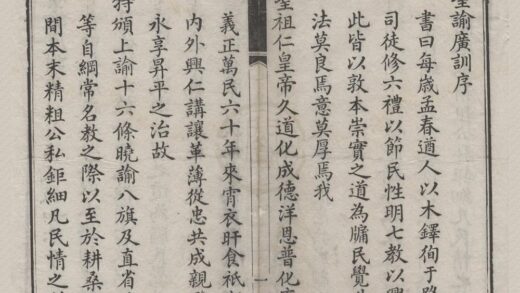 聖諭廣訓序
書曰每歲孟春遒人以木鐸徇于路
司徒修六禮以節民性明七教以興
此皆以敦本崇實之道為牖民覺
法莫良焉意莫厚焉我
聖祖仁皇帝久道化成德洋恩普
一
義正萬民六十年來宵衣旰食祗
內外興仁講讓革薄從忠共成親
永享昇平之治故
特頒上諭十六條曉諭八旗及直省
等自綱常名教之際以至於耕桑
間本末精粗公私鉅細凡民情之